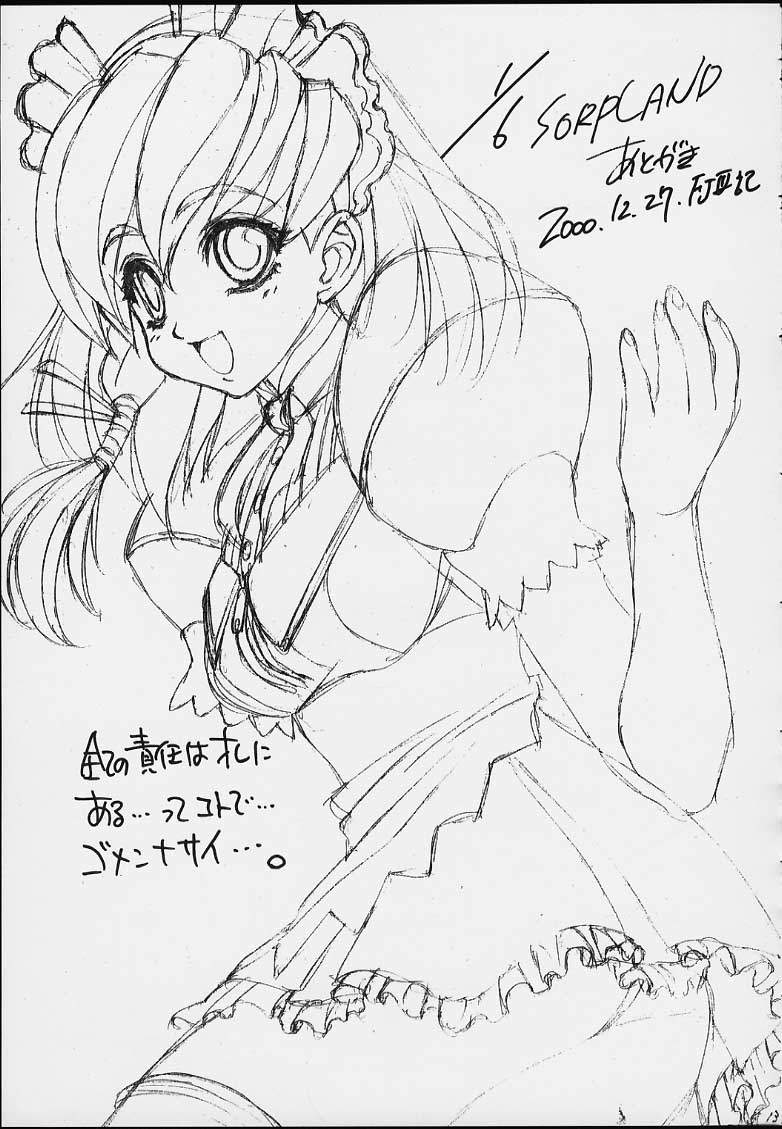 1/6 SORPLAND
あとがき
2000.12.27.FJⅢ記
全ての責任はオレに
ある…ってコトで…
ゴメンナサイ…。
13